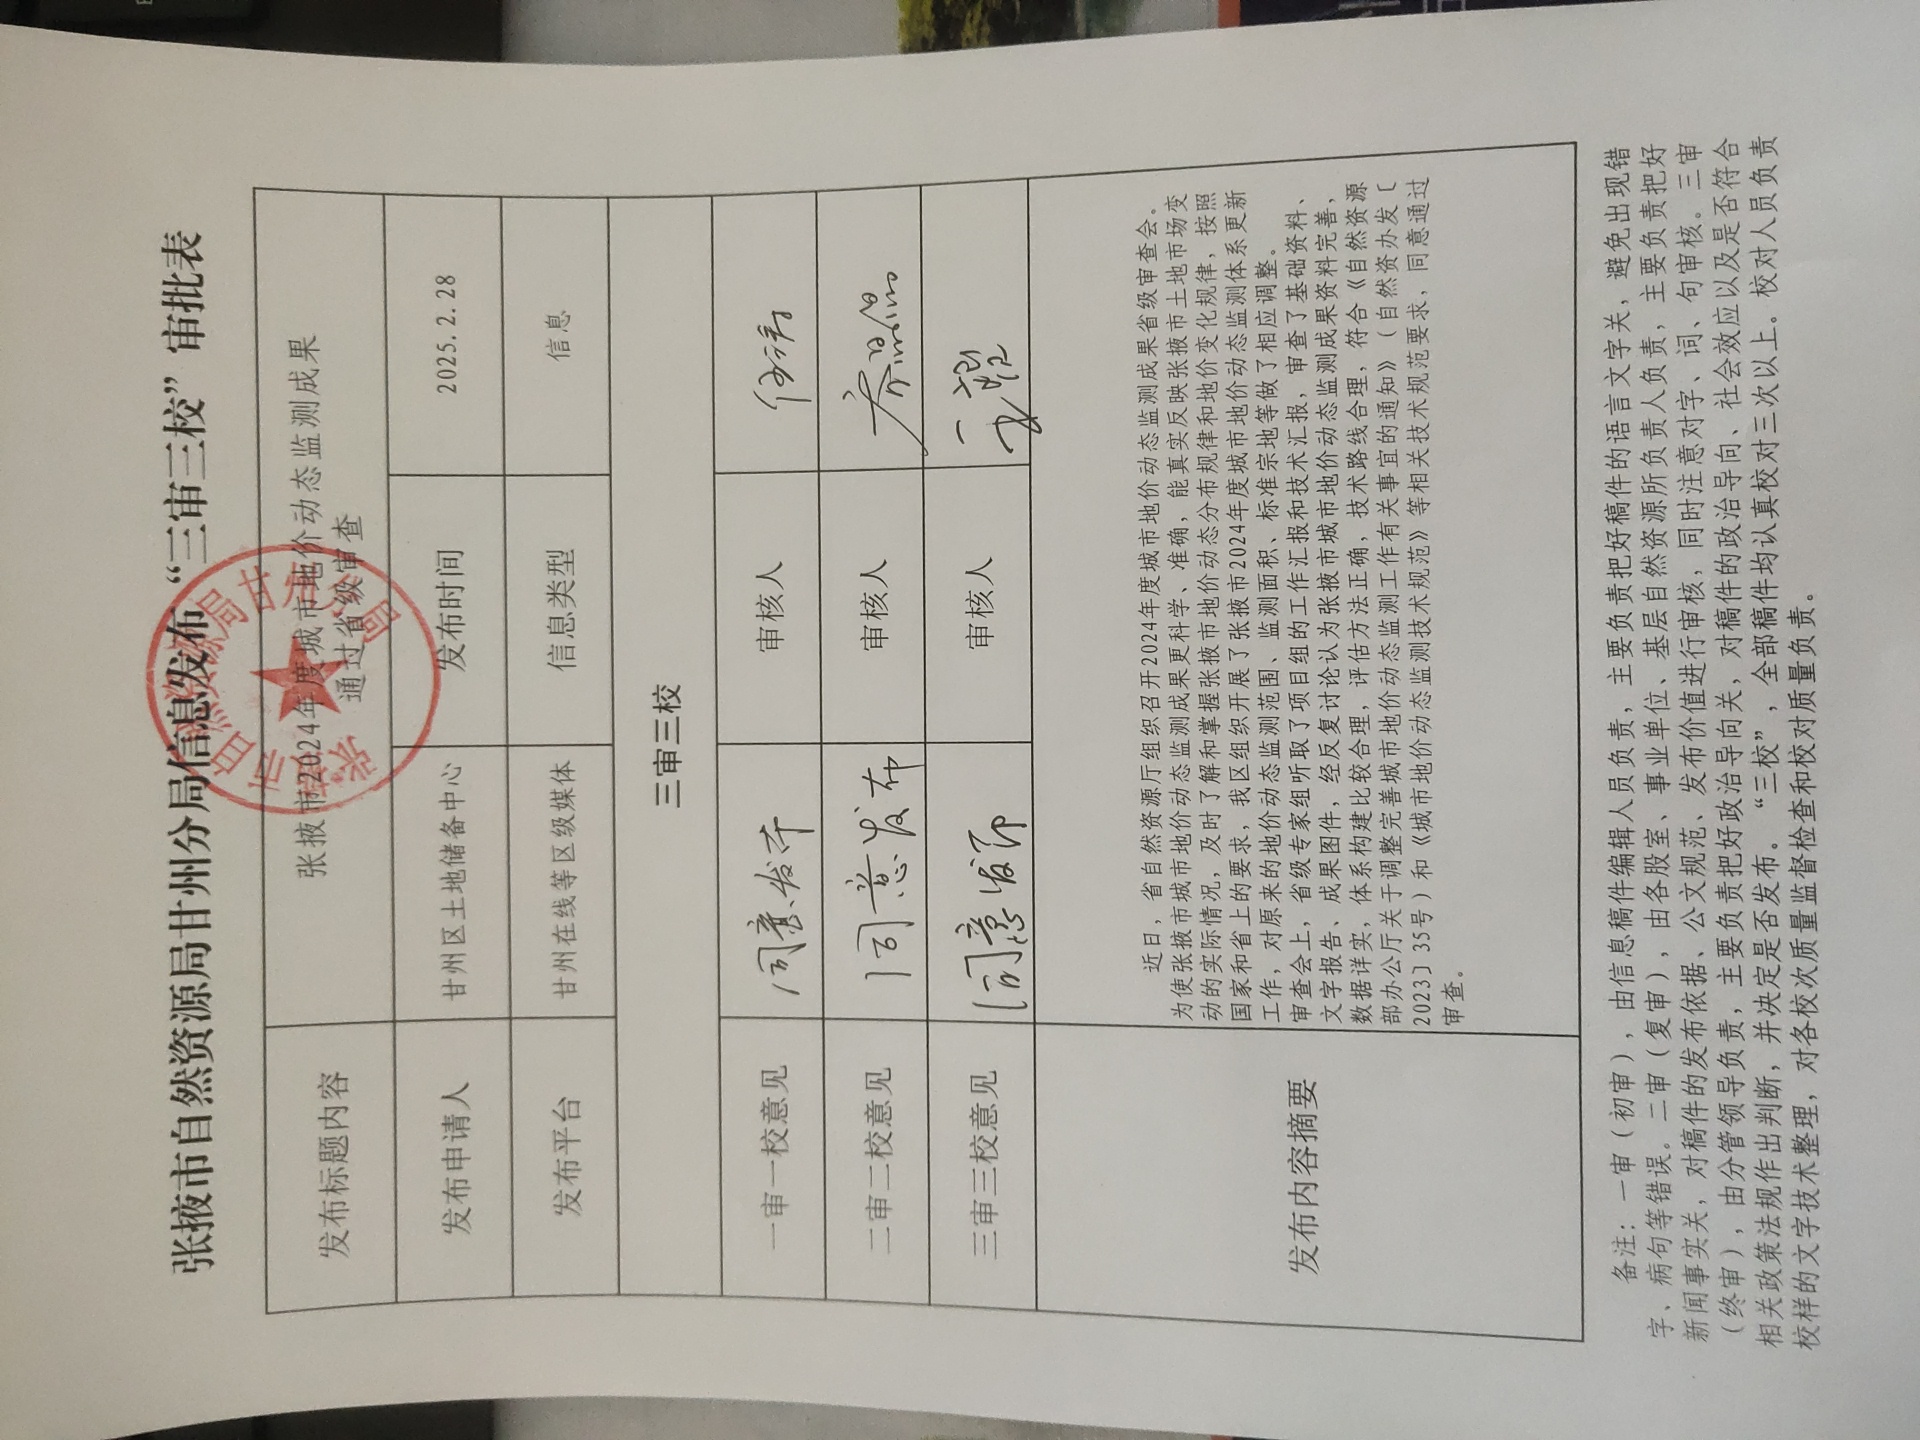 张掖市自然资源局甘州分局信息发布“三审三校”审批表
发布标题内容
张掖市2024年度城市地价动态监测成果
通过省级审查
发布申请人
甘州区土地储备中心
发布时间
2025.2.28
发布平台
甘州在线等区级媒体
信息类型
信息
三审三校
一审一校意见
同意发布
审核人
二审二校意见
同意发布
审核人
三审三校意见
同意发布
审核人
发布内容摘要
近日，省自然资源厅组织召开2024年度城市地价动态监测成果省级审查会。
为使张掖市城市地价动态监测成果更科学、准确，能真实反映张掖市土地市场变
动的实际情况，及时了解和掌握张掖市地价动态分布规律和地价变化规律，按照
国家和省上的要求，我区组织开展了张掖市2024年度城市地价动态监测体系更新
工作，对原来的地价动态监测范围、监测面积、标准宗地等做了相应调整。
审查会上，省级专家组听取了项目组的工作汇报和技术汇报，审查了基础资料、
文字报告、成果图件，经反复讨论认为张掖市城市地价动态监测成果资料完善，
数据详实，体系构建比较合理，评估方法正确，技术路线合理，符合《自然资源
部办公厅关于调整完善城市地价动态监测工作有关事宜的通知》（自然资办发〔
2023〕35号）和《城市地价动态监测技术规范》等相关技术规范要求，同意通过
审查。
备注：一审（初审），由信息稿件编辑人员负责，主要负责把好稿件的语言文字关，避免出现错
字、病句等错误。二审（复审），由各股室、事业单位、基层自然资源所负责人负责，主要负责把好
新闻事实关，对稿件的发布依据、公文规范、发布价值进行审核，同时注意对字、词、句审核。三审
（终审），由分管领导负责，主要负责把好政治导向关，对稿件的政治导向、社会效应以及是否符合
相关政策法规作出判断，并决定是否发布。“三校”，全部稿件均认真校对三次以上。校对人员负责
校样的文字技术整理，对各校次质量监督检查和校对质量负责。